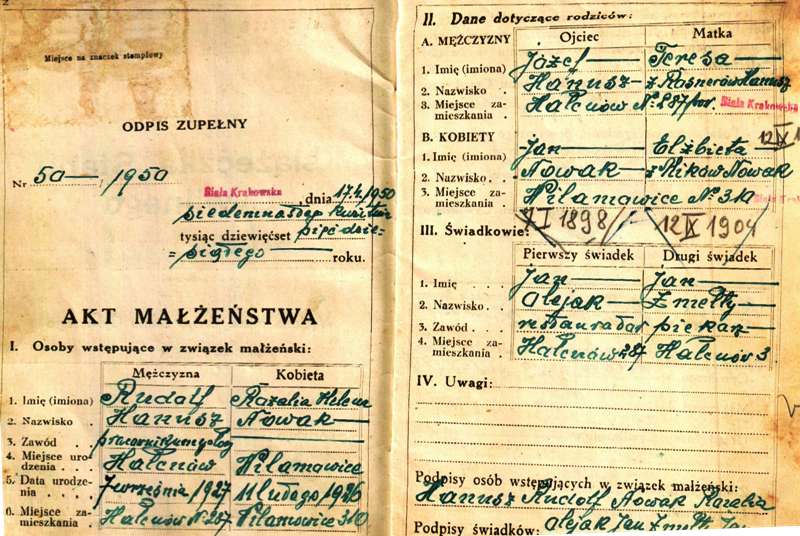 2
Miejsce na znaczek stemplowy
ODPIS ZUPEŁNY
Nr 50 /1950
Biała Krakowska, dnia 17.4.1950
tysiąc dziewięćset pięćdzie-
=siątego roku.
AKT MAŁŻEŃSTWA
I. Osoby wstępujące w związek małżeński:
Mężczyzna Kobieta
1. Imię (imiona) Rudolf Rozalia Helena
2. Nazwisko Hanusz Nowak
3. Zawód pracownik umysłowy
4. Miejsce uro-
dzenia Hałcnów Wilamowice
5. Data urodze-
nia 7 września 1927 11 lutego 1926
6. Miejsce za-
mieszkania Hałcnów Nº 287 Wilamowice 310
II. Dane dotyczące rodziców:
A. MĘŻCZYZNY Ojciec Matka
1. Imię (imiona) Józef Teresa
2. Nazwisko Hanusz z Rosnerów Hanusz
3. Miejsce za-
mieszkania Hałcnów Nº 287 pow. Biała Krakowska
B. KOBIETY 12 IX
1. Imię (imiona) Jan Elżbieta
2. Nazwisko Nowak z Mików Nowak
3. Miejsce za-
mieszkania Wilamowice Nº 310
I 1898 12 IX 1904
III. Świadkowie:
Pierwszy świadek Drugi świadek
1. Imię Jan Jan
2. Nazwisko Olejak Zmełty
3. Zawód restaurator piekarz
4. Miejsce za-
mieszkania Hałcnów 287 Hałcnów 3
IV. Uwagi:
Podpisy osób wstępujących w związek małżeński:
Hanusz Rudolf Nowak Rozalia
Podpisy świadków: Olejak Jan Zmełty Jan